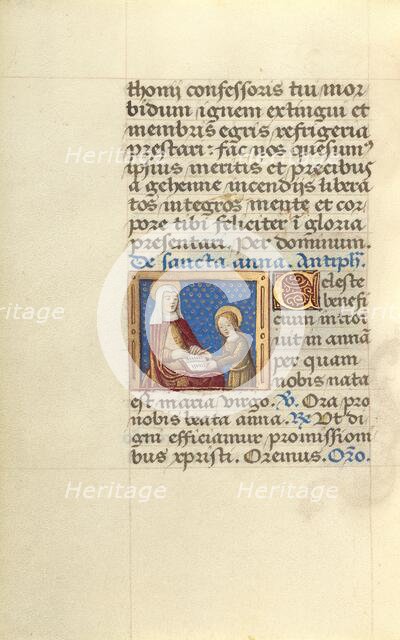 thonij confessoris tui mor
bidum ignem extingui et
membris egris refrigeria
prestari: fac nos quesumˀ
ipsius meritis et precibus
a gehenne incendijs libera
tos integros mente et cor
pore tibi feliciter ī gloria
presentari. Per dominum.
De sancta anna. Antiph.
Celeste
benefi
cium introi
uit in annā
per quam
nobis nata
est maria virgo. ℣. Ora pro
nobis beata anna. ℟. Vt di
gni efficiamur promission
bus xpristi. Oremus. Oro.
Heritage Heritage Heritage
Heritage Heritage Heritage
Heritage Heritage Heritage